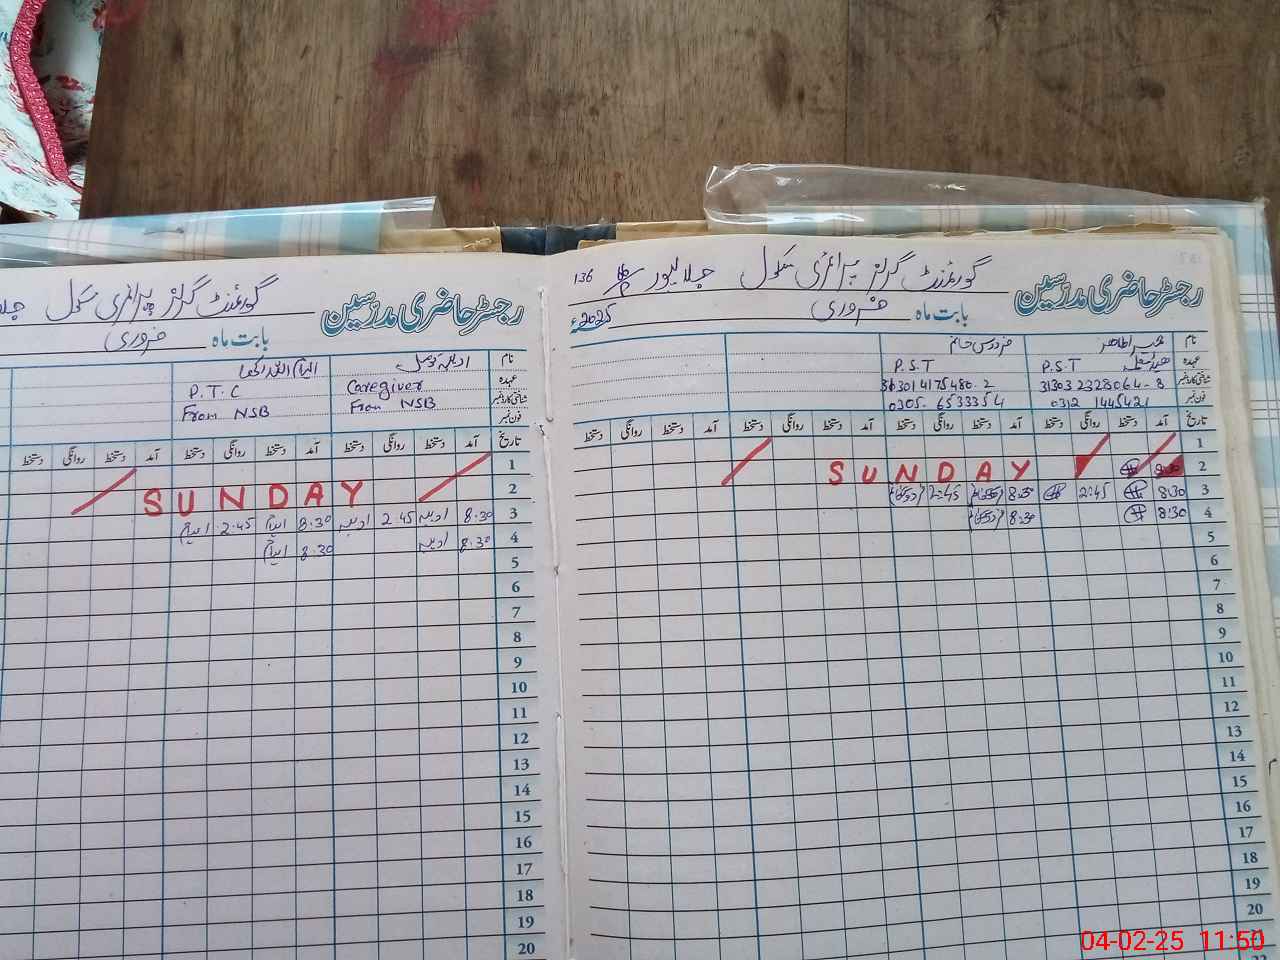 گورنمنٹ گرلز پرائمری سکول
رجسٹر حاضری مدرسین
بابت ماہ فروری
نام
عہدہ
شناختی کارڈ نمبر
فون نمبر
P.T.C
From NSB
Caregiver
From NSB
تاریخ آمد دستخط روانگی دستخط آمد دستخط روانگی دستخط آمد دستخط روانگی دستخط
1
2 SUNDAY
3 8.30 2.45 8.30 2.45
4 8.30 8.30
5
6
7
8
9
10
11
12
13
14
15
16
17
18
19
20
136
گورنمنٹ گرلز پرائمری سکول
رجسٹر حاضری مدرسین
بابت ماہ فروری 2025ء
نام
عہدہ P.S.T P.S.T
شناختی کارڈ نمبر 31303 2328064-8
فون نمبر 0312 1445421 0305-6533354
تاریخ آمد دستخط روانگی دستخط آمد دستخط روانگی دستخط آمد دستخط روانگی دستخط
1
2 8.30 SUNDAY
3 8.30 2.45 8.30 2.45
4 8.30 8.30
5
6
7
8
9
10
11
12
13
14
15
16
17
18
19
20
04-02-25 11:50